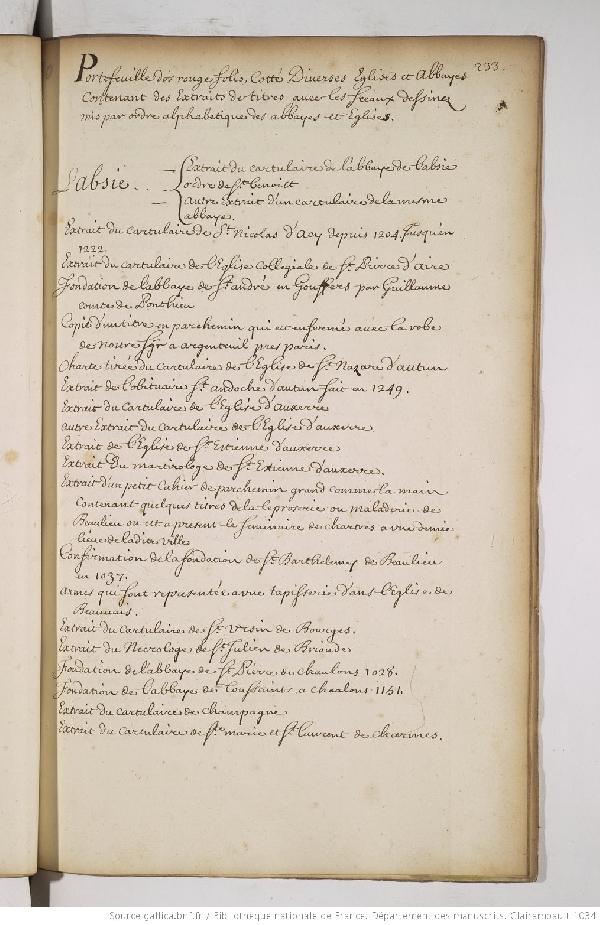 233.
Portefeuille dos rouge folio, Cotté Diverses Eglises et Abbayes
Contenant des Extraits de titres avec les sceaux dessinez
mis par ordre alphabetique des abbayes et Eglises.
Extrait du cartulaire de l'abbaye de l'absie
L'absie. ordre de St. benoist
autre Extrait d'un cartulaire de la mesme
abbaye.
Extrait du Cartulaire de St. Nicolas d'Acy depuis 1204. Jusqu'en
1222.
Extrait du cartulaire de l'Eglise Collegiale de St. Pierre d'aire
Fondation de l'abbaye de St. andré en Gouffers par Guillaume
comte de Ponthieu
Copie d'un titre en parchemin qui est enfermé avec la robe
de nostre Sgr. a argenteuil pres paris.
Charte tirée du Cartulaire de l'Eglise de St. Nazare d'autun
Extrait de l'obituaire St. andoche d'autun fait en 1249.
Extrait du Cartulaire de l'Eglise d'auxerre
autre Extrait du cartulaire de l'Eglise d'auxerre
Extrait de l'Eglise de St. Estienne d'auxerre
Extrait Du martirologe de St. Estienne d'auxerre.
Extrait d'un petit Cahier de parchemin grand comme la main
Contenant quelques titres de la leproserie ou maladerie de
Beaulieu ou est a present le seminaire de chartres a une demie
lieue de ladite ville
Confirmation de la fondation de St. Barthelemy de Beaulieu
en 1037.
armes qui sont representée a une tapisserie d'ans l'eglise de
Beauvais.
Extrait du Cartulaire de St. Ursin de Bourges.
Extrait du Necrologe de St. Julien de Brioude
Fondation de l'abbaye de St. Pierre de chaalons 1028.
Fondation de l'abbaye de Toussaint a chaalons 1161.
Extrait du Cartulaire de champagne
Extrait du Cartulaire de Ste. marie et St. laurent de charmes.
Source gallica.bnf.fr / Bibliothèque nationale de France. Département des manuscrits. Clairambault 1034